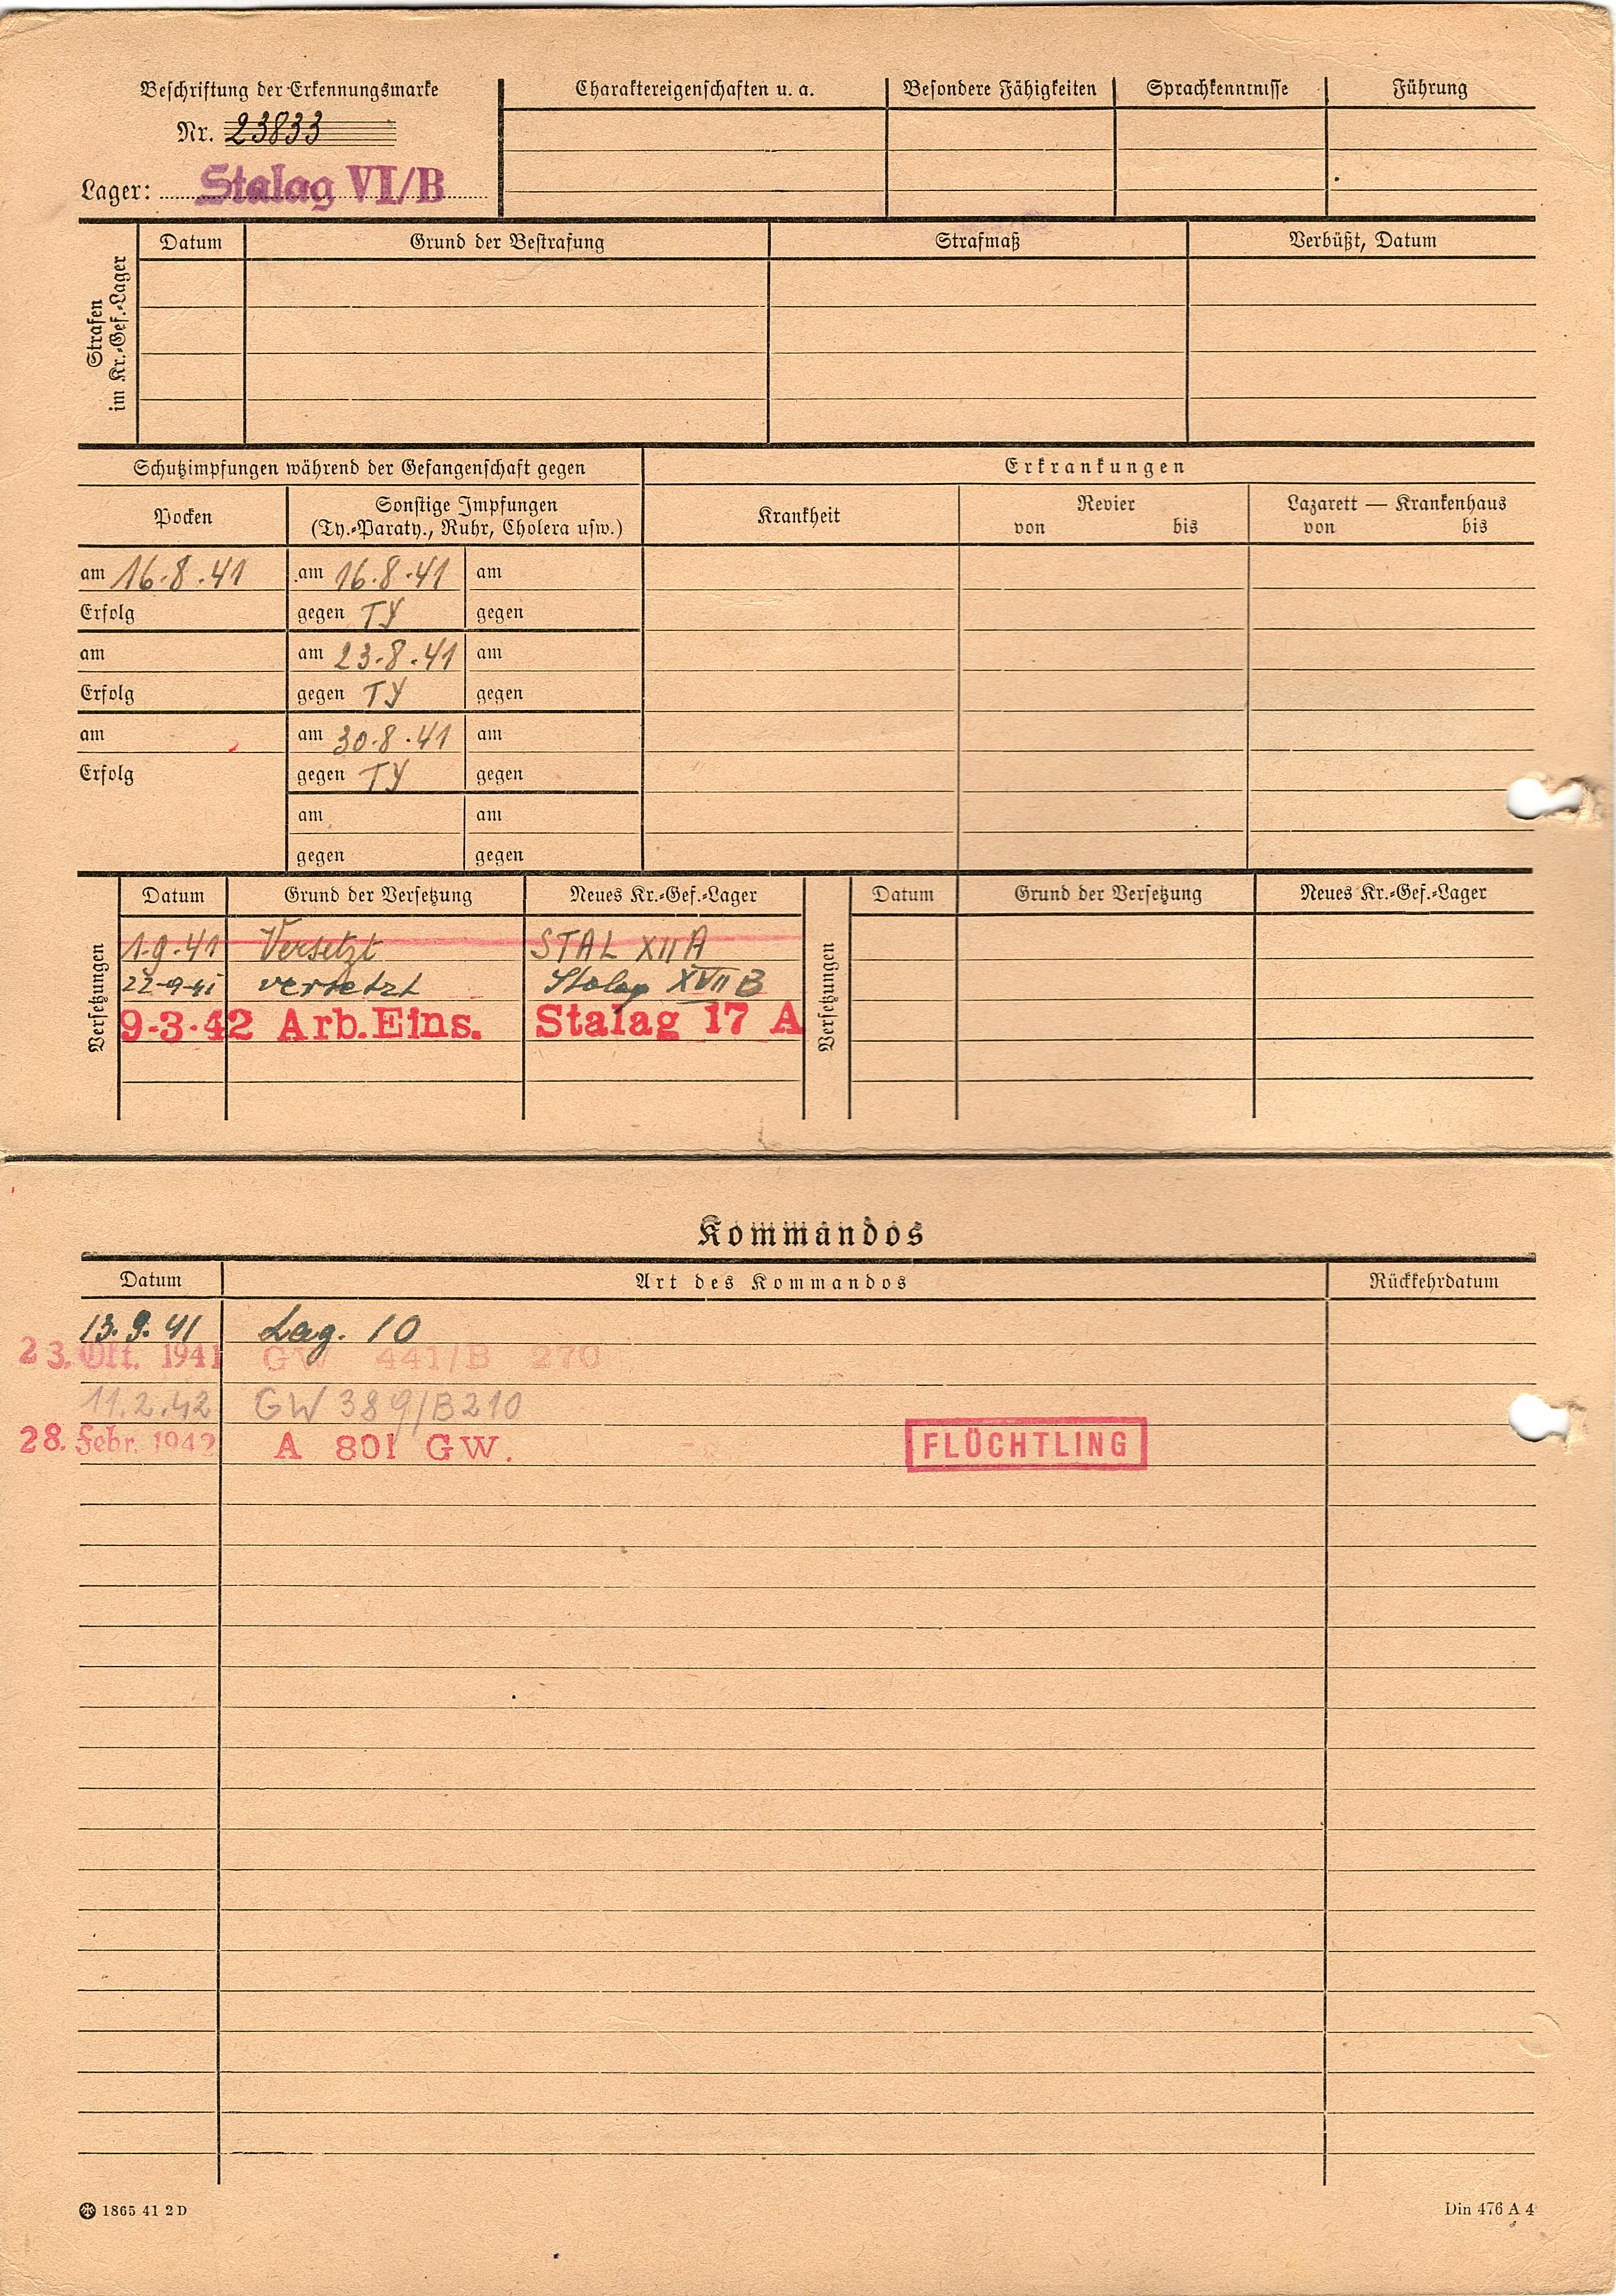 Beschriftung der Erkennungsmarke
Nr. 23833
Lager: Stalag VI/B
Charaktereigenschaften u. a.
Besondere Fähigkeiten
Sprachkenntnisse
Führung
Strafen
im Kr.-Gef.-Lager
Datum
Grund der Bestrafung
Strafmaß
Verbüßt, Datum
Schutzimpfungen während der Gefangenschaft gegen
Erkrankungen
Pocken
Sonstige Impfungen
(Ty.-Paraty., Ruhr, Cholera usw.)
Krankheit
Revier
von bis
Lazarett — Krankenhaus
von bis
am 16.8.41 am 16.8.41 am
Erfolg gegen TY gegen
am am 23.8.41 am
Erfolg gegen TY gegen
am am 30.8.41 am
Erfolg gegen TY gegen
am am
gegen gegen
Versetzungen
Datum Grund der Versetzung Neues Kr.-Gef.-Lager
1.9.41 Versetzt STAL XII A
22-9-41 versetzt Stalag XVII B
9-3-42 Arb.Eins. Stalag 17 A
Versetzungen
Datum Grund der Versetzung Neues Kr.-Gef.-Lager
Kommandos
Datum Art des Kommandos Rückkehrdatum
13.9.41 Lag. 10
23. Okt. 1941 GW 441/B 270
11.2.42 GW 389/B210
28. Febr. 1942 A 801 GW. FLÜCHTLING
1865 41 2 D
Din 476 A 4